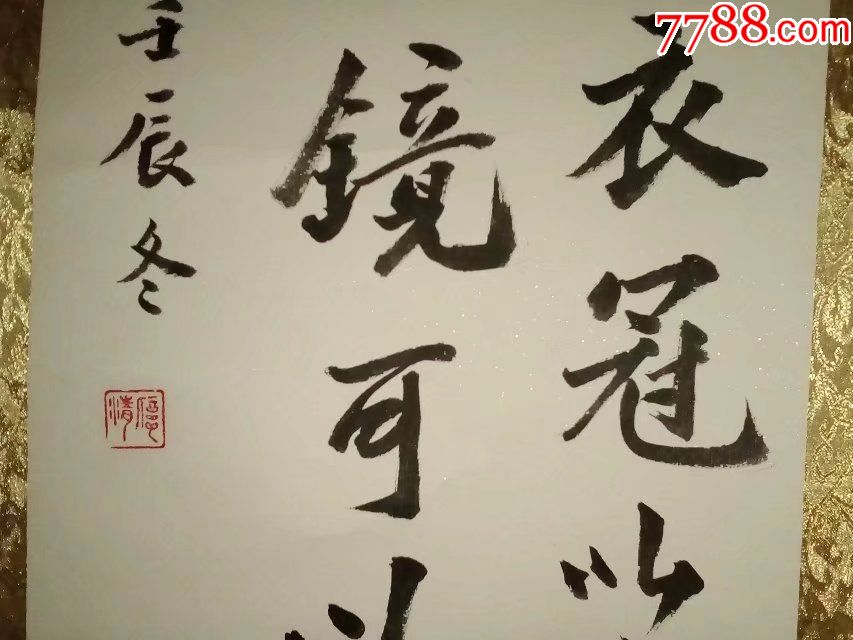 7788.com
衣冠以
镜可以
壬辰冬